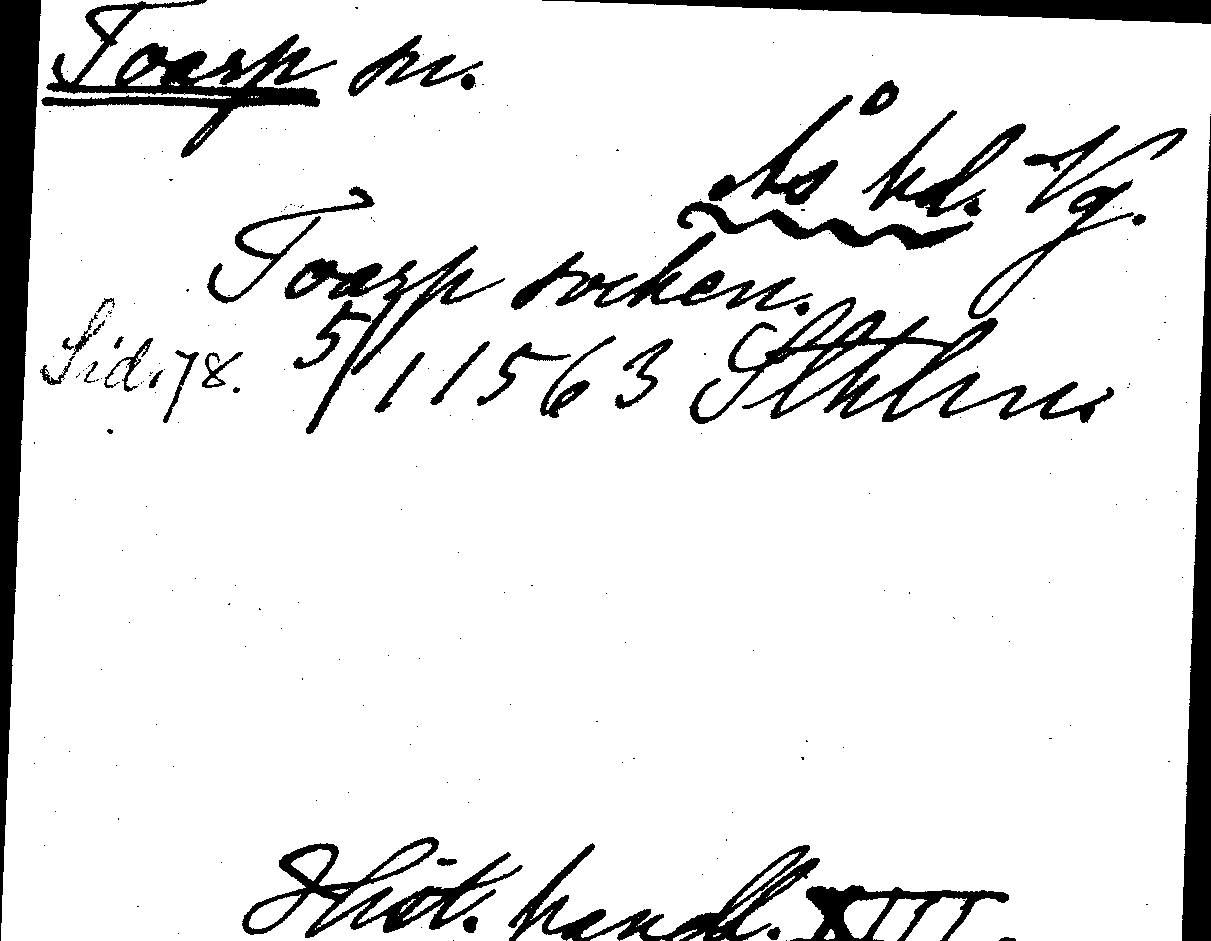 Toarp sn.
Ås hd. Vg.
Toarp socken.
Sid. 78. 5/1 1563 Sthlm.
Hist. handl. XIII.